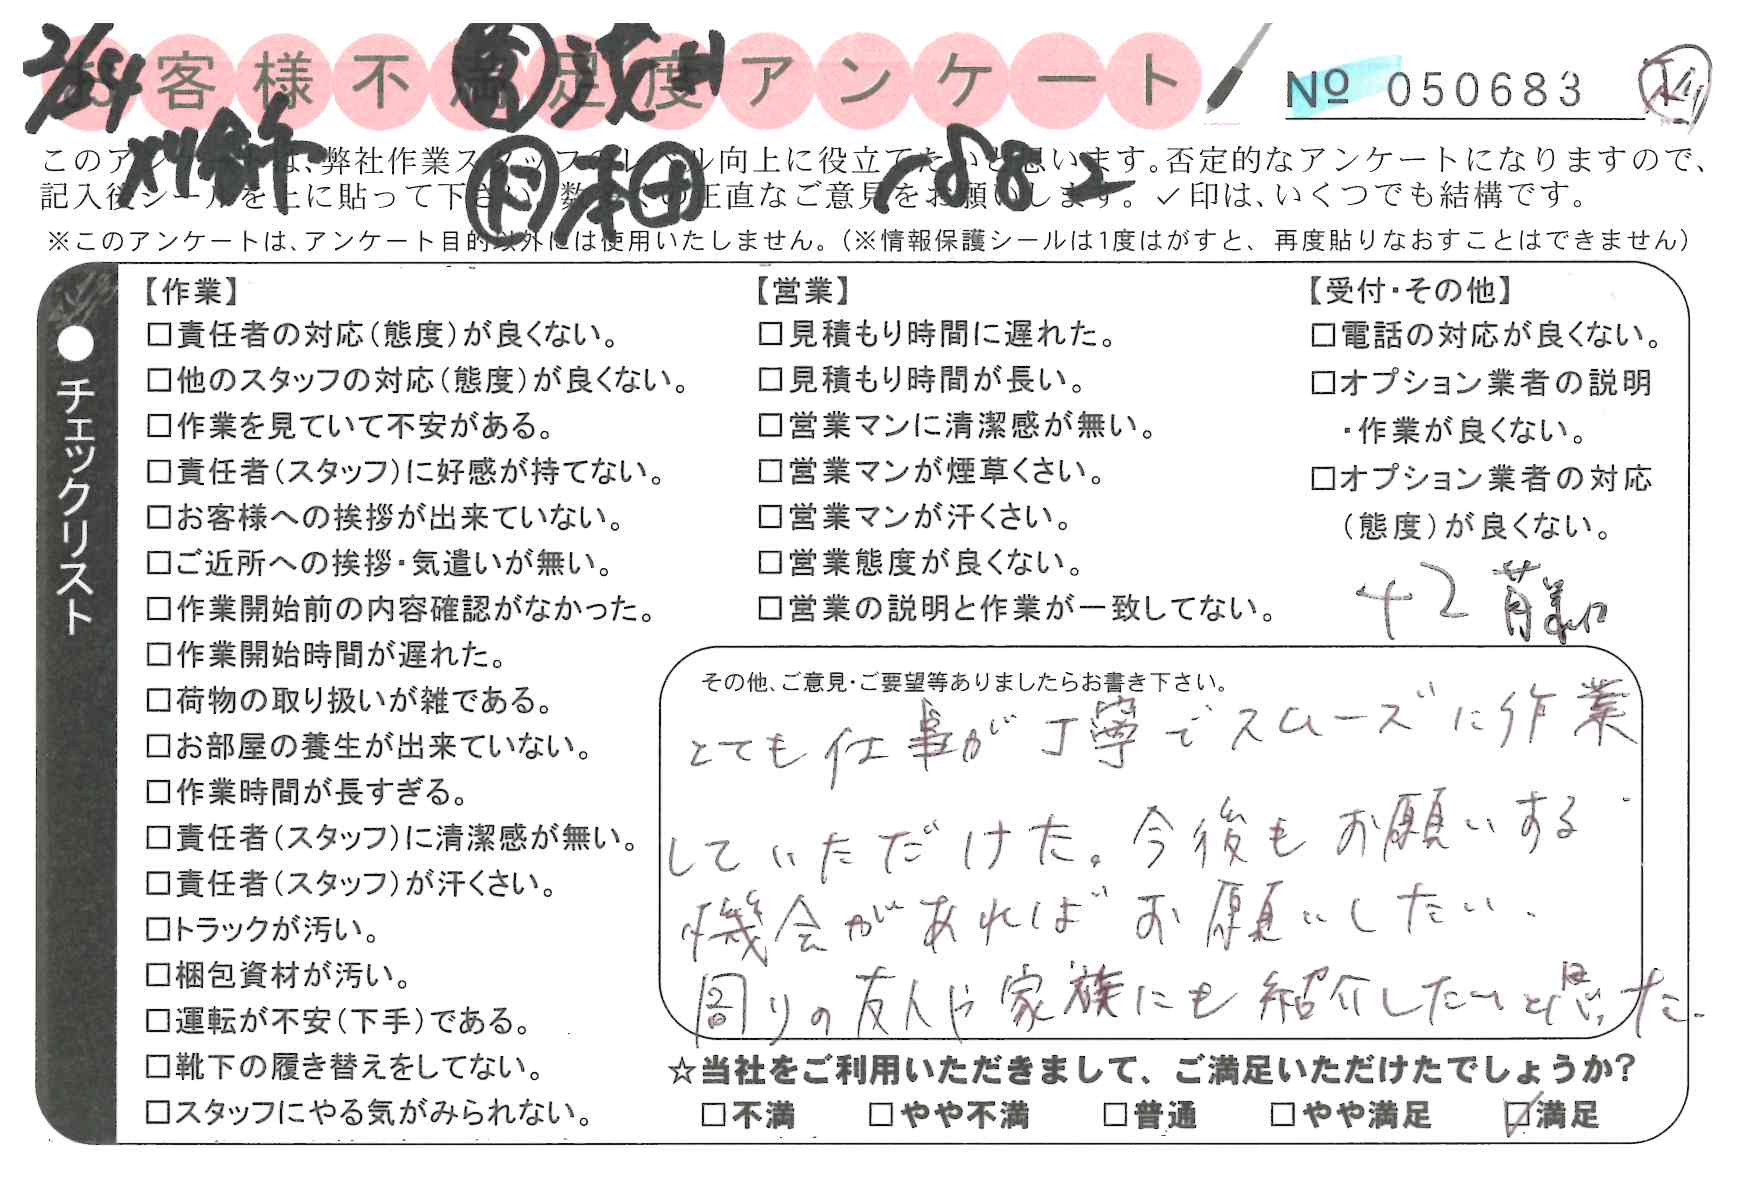 お客様不満足度アンケート
№ 050683
2/24
このアンケートは、弊社作業スタッフのレベル向上に役立てたいと思います。否定的なアンケートになりますので、
記入後シールを上に貼って下さい。数多くの正直なご意見をお願いします。✓印は、いくつでも結構です。
※このアンケートは、アンケート目的以外には使用いたしません。(※情報保護シールは1度はがすと、再度貼りなおすことはできません)
●チェックリスト
【作業】
□責任者の対応(態度)が良くない。
□他のスタッフの対応(態度)が良くない。
□作業を見ていて不安がある。
□責任者(スタッフ)に好感が持てない。
□お客様への挨拶が出来ていない。
□ご近所への挨拶・気遣いが無い。
□作業開始前の内容確認がなかった。
□作業開始時間が遅れた。
□荷物の取り扱いが雑である。
□お部屋の養生が出来ていない。
□作業時間が長すぎる。
□責任者(スタッフ)に清潔感が無い。
□責任者(スタッフ)が汗くさい。
□トラックが汚い。
□梱包資材が汚い。
□運転が不安(下手)である。
□靴下の履き替えをしてない。
□スタッフにやる気がみられない。
【営業】
□見積もり時間に遅れた。
□見積もり時間が長い。
□営業マンに清潔感が無い。
□営業マンが煙草くさい。
□営業マンが汗くさい。
□営業態度が良くない。
□営業の説明と作業が一致してない。
【受付・その他】
□電話の対応が良くない。
□オプション業者の説明
・作業が良くない。
□オプション業者の対応
(態度)が良くない。
その他、ご意見・ご要望等ありましたらお書き下さい。
とても仕事が丁寧でスムーズに作業
していただけた。今後もお願いする
機会があればお願いしたい。
周りの友人や家族にも紹介したいと思った。
☆当社をご利用いただきまして、ご満足いただけたでしょうか?
□不満 □やや不満 □普通 □やや満足 ☑満足